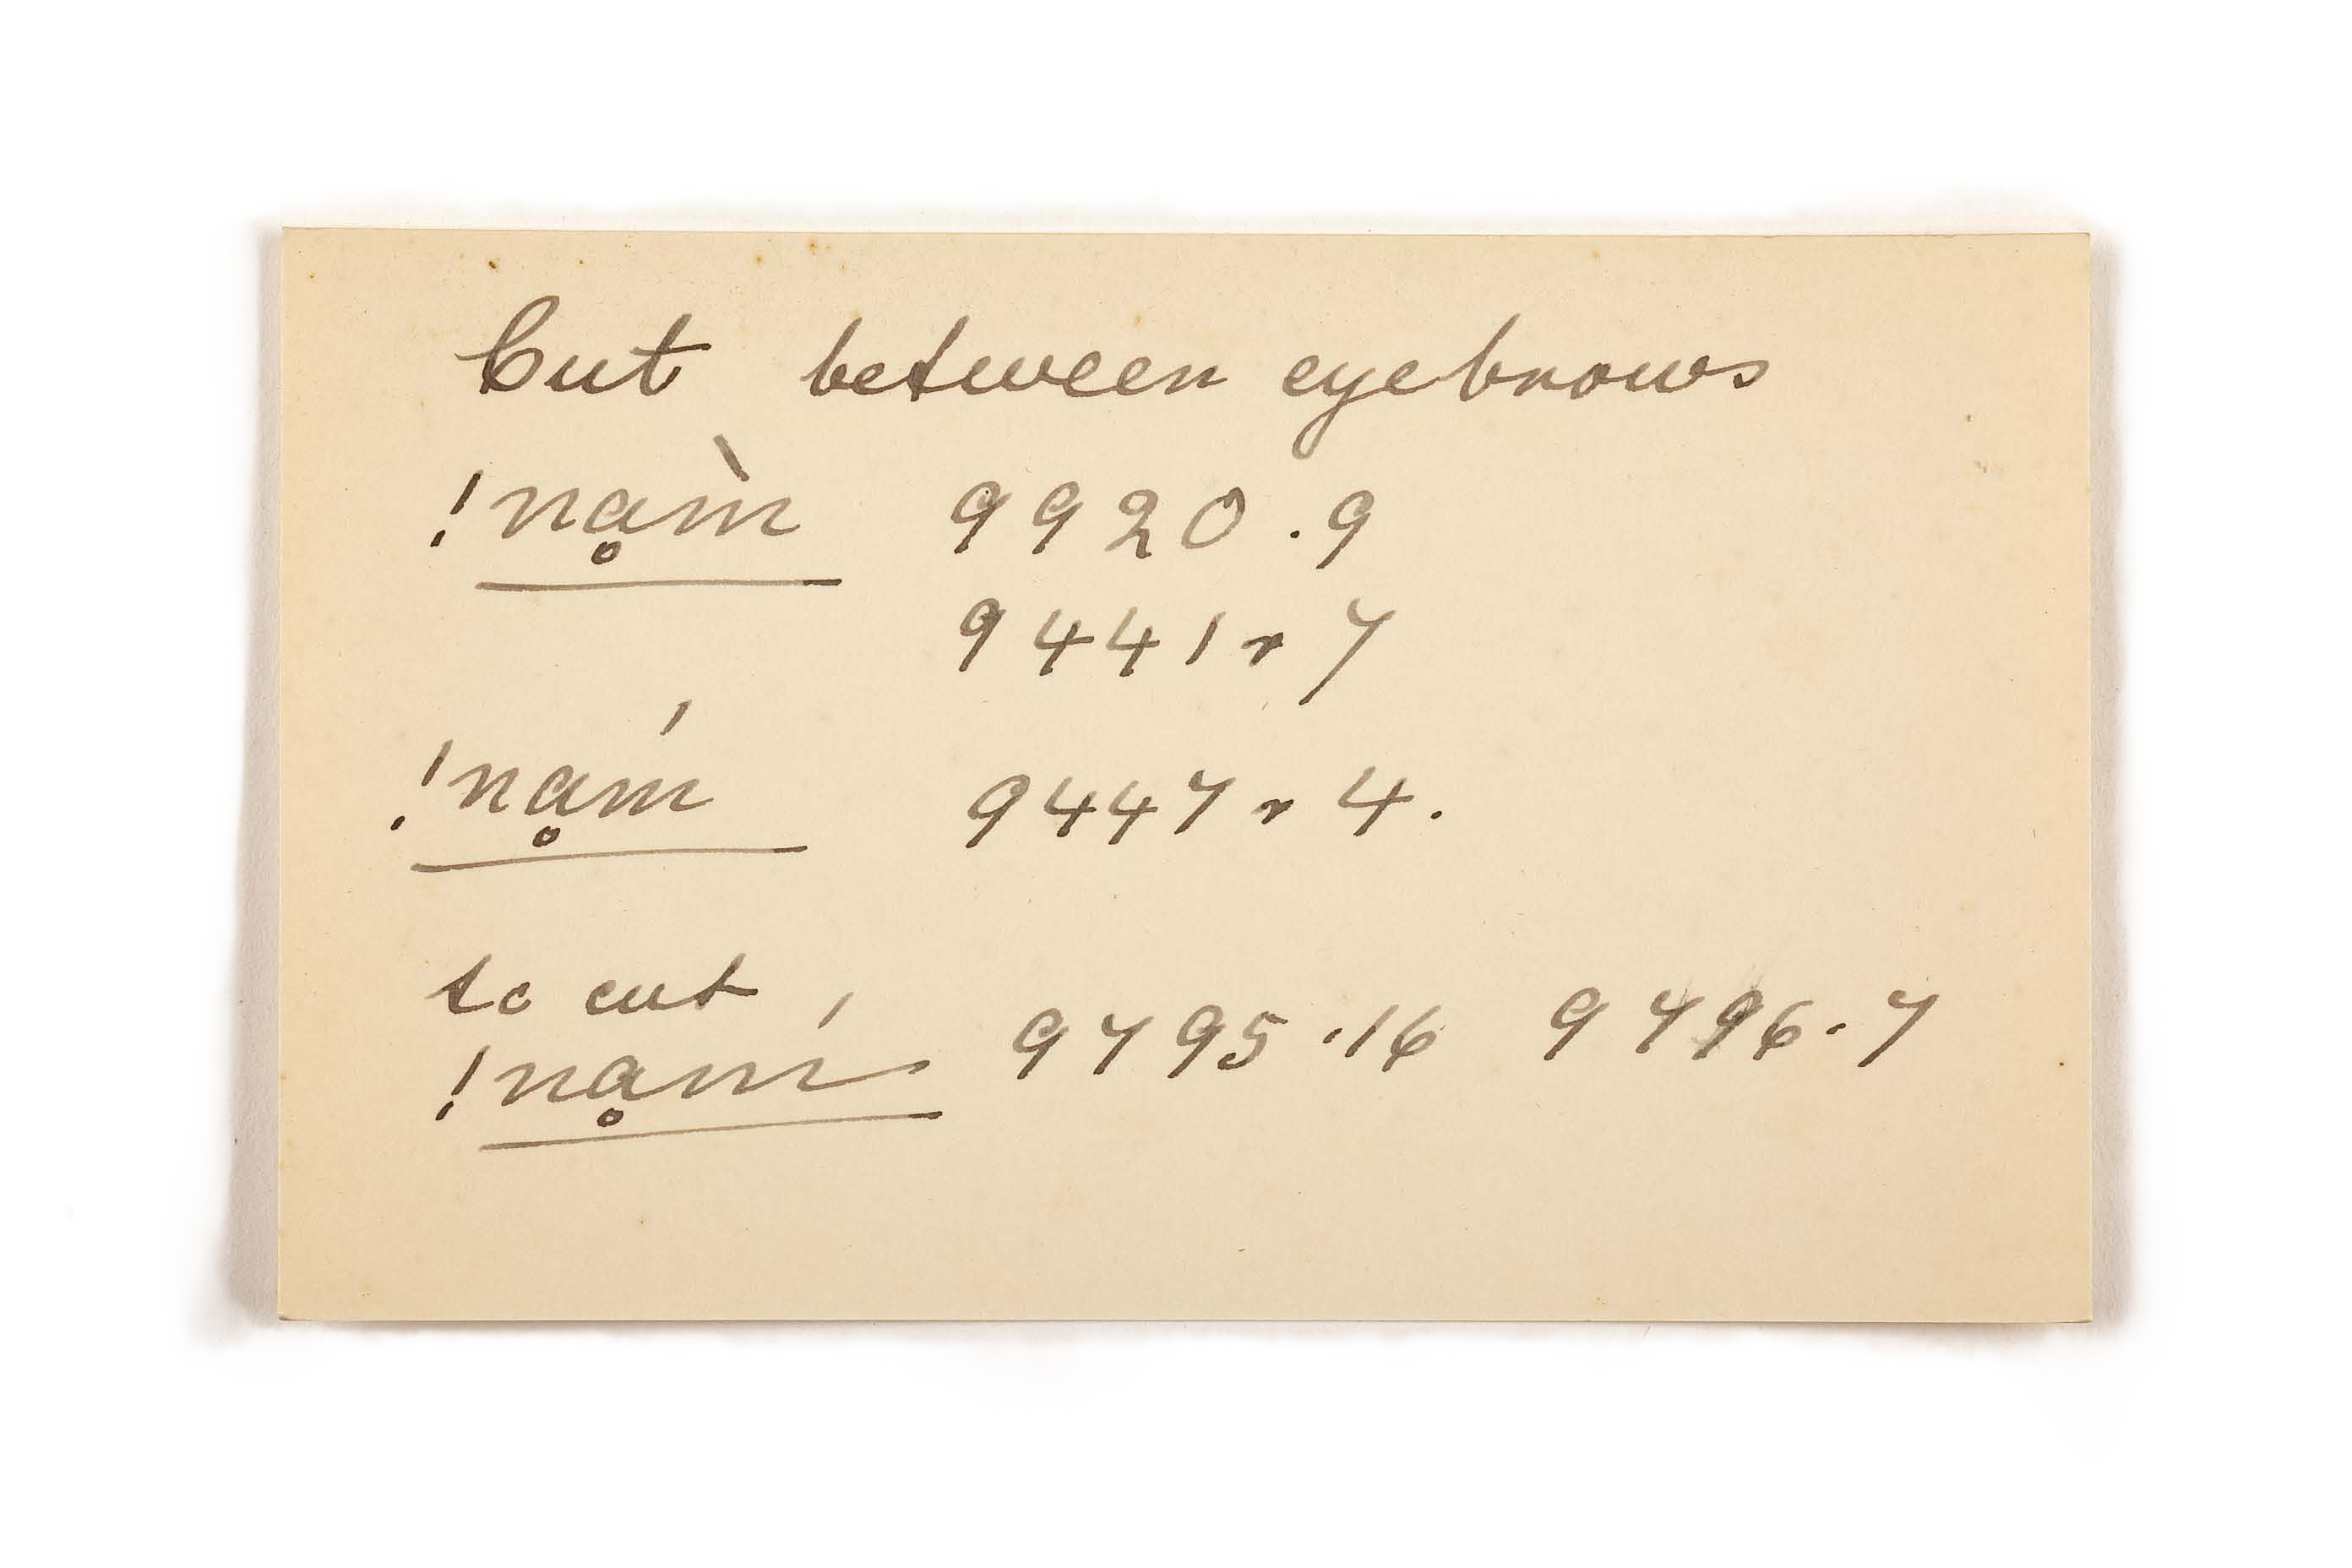 Cut between eyebrows
!nḁm̀ 9920.9
9441 r 7
!nḁḿ 9447 r 4.
to cut
!nḁḿ 9795.16 9796.7